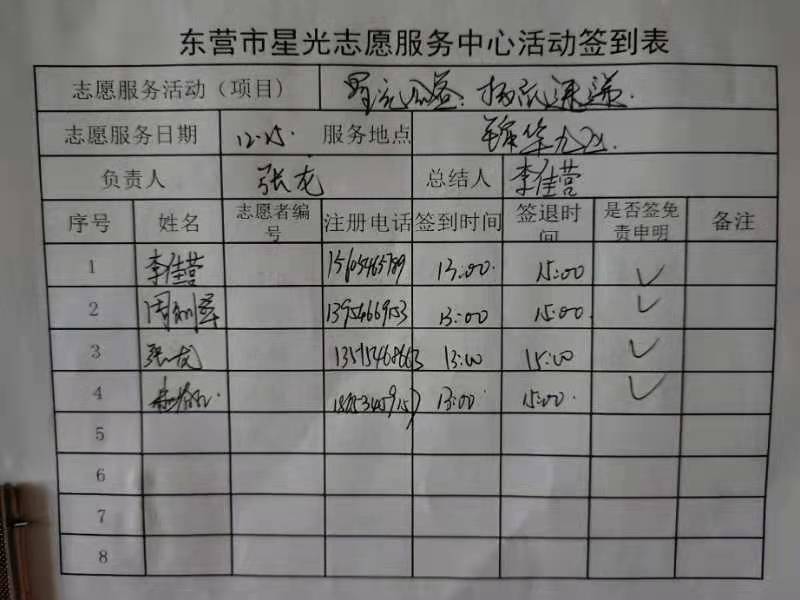 东营市星光志愿服务中心活动签到表
志愿服务活动（项目） 星光公益：
志愿服务日期 12-25. 服务地点
负责人 张龙 总结人 李佳营
序号 姓名 志愿者编号 注册电话 签到时间 签退时间 是否签免责申明 备注
1 李佳营 15605465789 13:00. 15:00 ✓
2 13954669153 13:00 15:00. ✓
3 张龙 13:00 15:00 ✓
4 13:00. 15:00. ✓
5
6
7
8